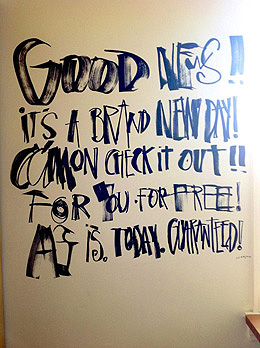 GOOD NEWS!!
iT'S A BRAND NEW DAY!
C'MON CHECK iT OUT!!
FOR YOU. FOR FREE!
AS iS. TODAY. GUARANTEED!